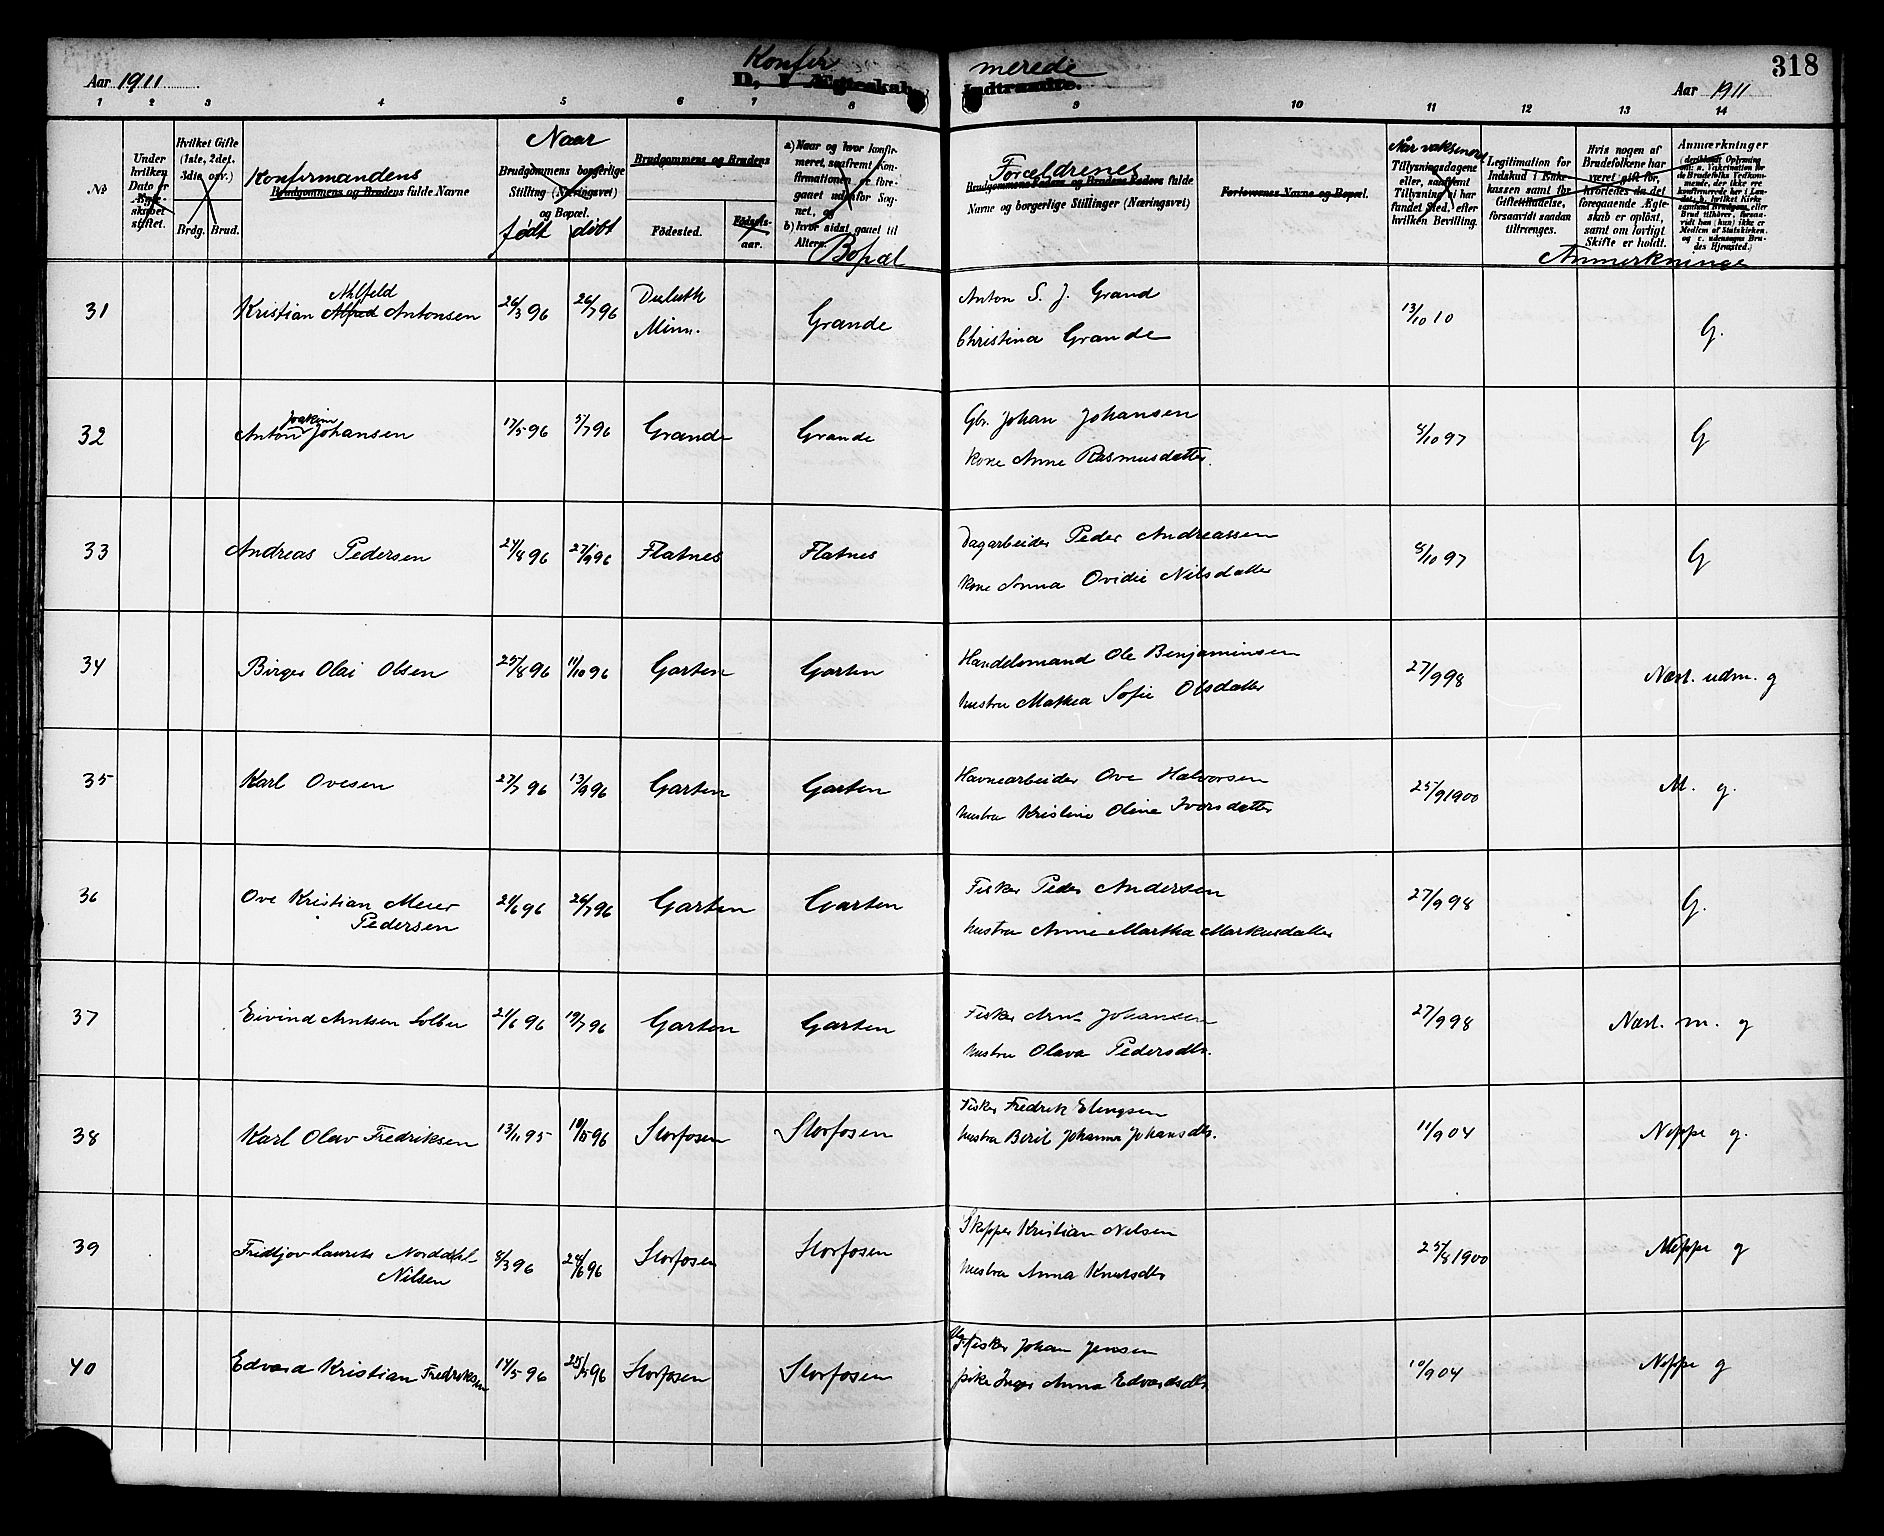 318
Aar 1911
Konfir merede
D. I Ægteskab Indtraadte.
Aar 1911
1 2 3 4 5 6 7 8 9 10 11 12 13 14
No
Under hvilken Dato er Ægteskabet stiftet.
Hvilket Gifte (1ste, 2det, 3die osv.)
Brdg. Brud.
Konfirmandens
Brudgommens og Brudens fulde Navne
Naar
Brudgommens borgerlige Stilling (Næringsvei) og Bopæl.
født døbt
Brudgommens og Brudens
Födested.
Födsels-aar.
a) Naar og hvor konfirmeret, saafremt Konfirmationen er foregaaet udenfor Sognet, og
b) hvor sidst gaaet til Alters.
Bopæl
Forældrenes
Brudgommens Faders og Brudens Faders fulde Navne og borgerlige Stillinger (Næringsvei)
Forlovernes Navne og Bopæl.
Når vaksineret
Tillysningsdagene eller, saafremt Tillysning ei har fundet Sted, efter hvilken Bevilling.
Legitimation for Indskud i Enkekassen samt for Giftetilladelse, forsaavidt saadan tiltrænges.
Hvis nogen af Brudefolkene har været gift før, hvorledes da det foregaaende Ægteskab er opløst, samt om lovligt Skifte er holdt.
Anmærkninger
Anmerkninger
31 Kristian Alfred Ahlfeld Antonsen 26/3 96 26/7 96 Duluth Minn. Grande Anton S. J. Grand 13/10 10 G.
Christina Grande
32 Anton Joakim Johansen 17/5 96 5/7 96 Grande Grande Gbr. Johan Johansen 8/10 97 G
kone Anne Rasmusdatter.
33 Andreas Pedersen 24/8 96 27/9 96 Flatnes Flatnes Dagarbeider Peder Andreassen 8/10 97 G
kone Anna Ovidie Nilsdatter
34 Birger Olai Olsen 25/8 96 11/10 96 Garten Garten Handelsmand Ole Benjaminsen 27/9 98 Næst. udm. g
hustru Mathea Sofie Olsdatter
35 Karl Ovesen 27/7 96 13/9 96 Garten Garten Havnearbeider Ove Halvorsen 25/9 1900 M. g.
hustru Kristine Oline Iversdatter
36 Ove Kristian Meier Pedersen 21/6 96 26/7 96 Garten Garten Fisker Peder Andersen 27/9 98 G.
hustru Anne Martha Markusdatter
37 Eivind Arntsen Solbu 21/6 96 19/7 96 Garten Garten Fisker Arnt Johansen 27/9 98 Næst. m. g
hustru Olava Pedersdtr.
38 Karl Olav Fredriksen 13/11 95 10/5 96 Storfosen Storfosen Fisker Fredrik Elingsen 11/9 04 Neppe g.
hustru Beril Johanna Johansdtr.
39 Fridtjov Laurits Norddahl Nilsen 8/3 96 24/6 96 Storfosen Storfosen Skipper Kristian Nilsen 25/8 1900 Neppe g
hustru Anna Knutsdtr
40 Edvard Kristian Fredriksen 14/5 96 25/5 96 Storfosen Storfosen Ug. Fisker Johan Jensen 10/9 04 Neppe g
pike Inger Anna Edvardsdtr.